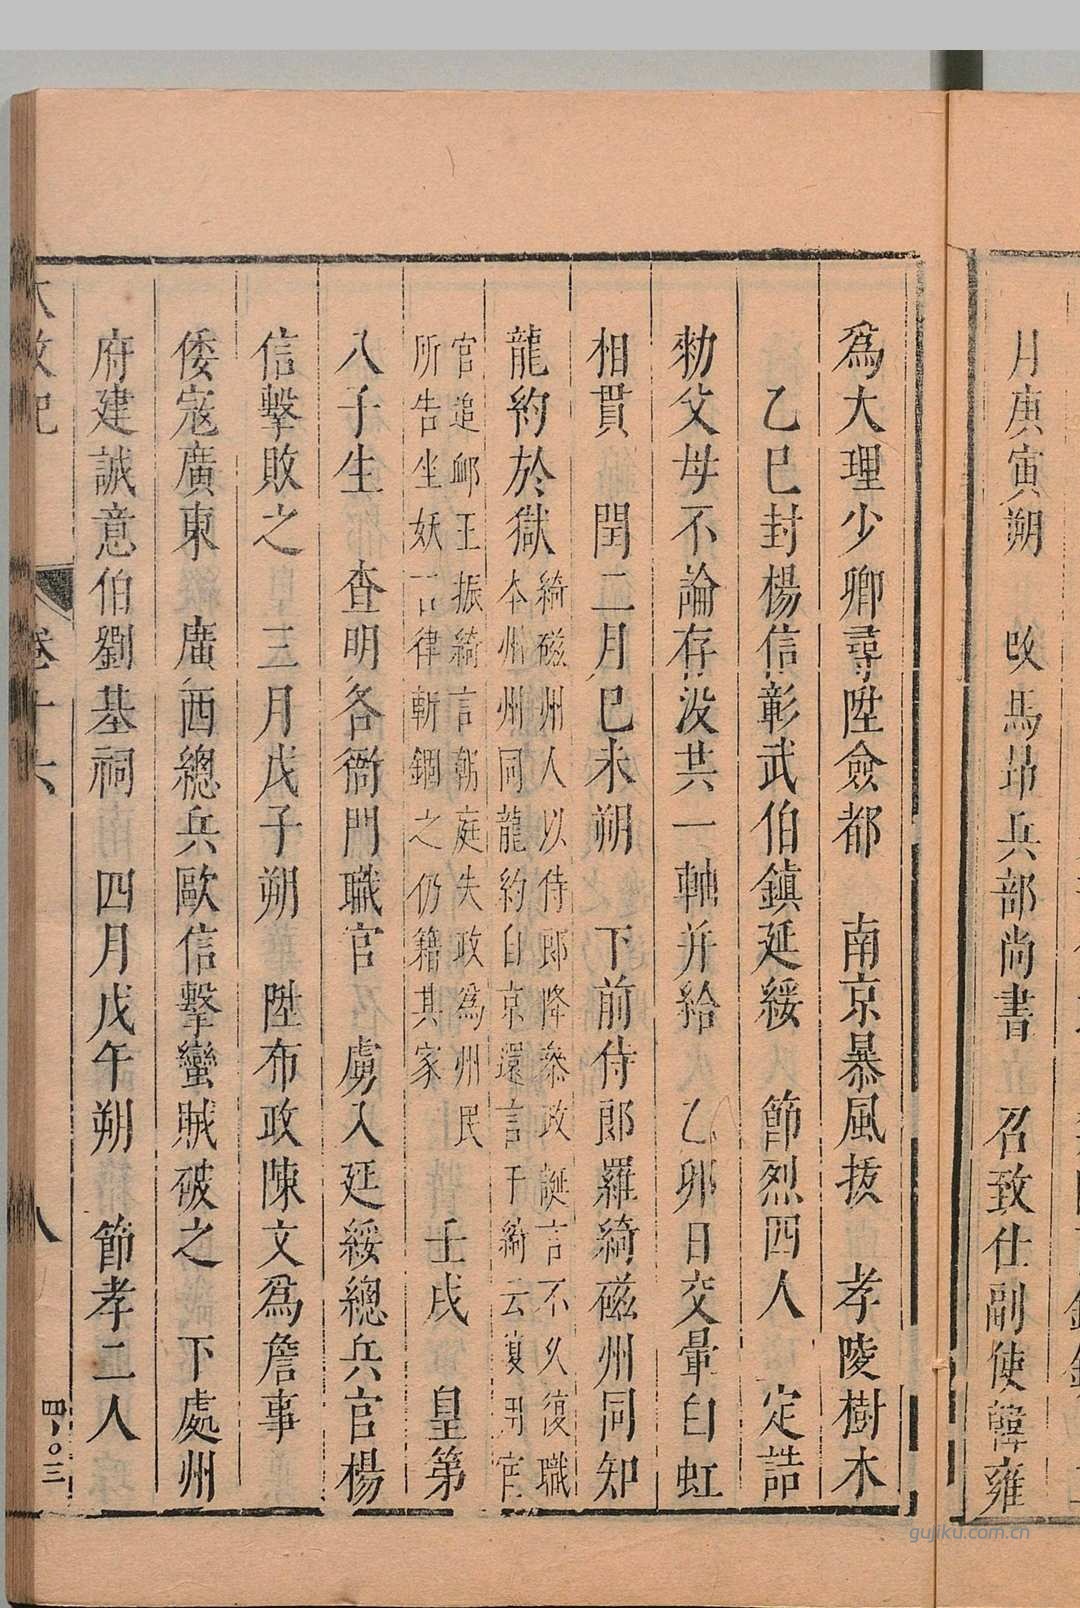 月庚寅朔　改馬昂兵部尚書　召致仕副使韓雍
爲大理少卿尋陞僉都　南京暴風拔　孝陵樹木
乙巳封楊信彰武伯鎮延綏　節烈四人　定誥
勑父母不論存没共一軸并給　乙卯日交暈白虹
相貫　閏二月巳未朔　下前侍郎羅綺磁州同知
龍約於獄
綺磁州人以侍郎降叅政誕言不久復職
本州州同龍約自京還言于綺云復用官
官追邮王振綺言朝庭失政爲州民
所告坐妖言律斬錮之仍籍其家
壬戌　皇第
八子生　查明各衙門職官　虜入延綏總兵官楊
信擊敗之　三月戊子朔　陞布政陳文爲詹事
倭寇廣東　廣西總兵歐信擊蠻賊破之　下處州
府建誠意伯劉基祠　四月戊午朔　節孝二人
大政記　卷十六　八
四〇三
gujiku.com.cn